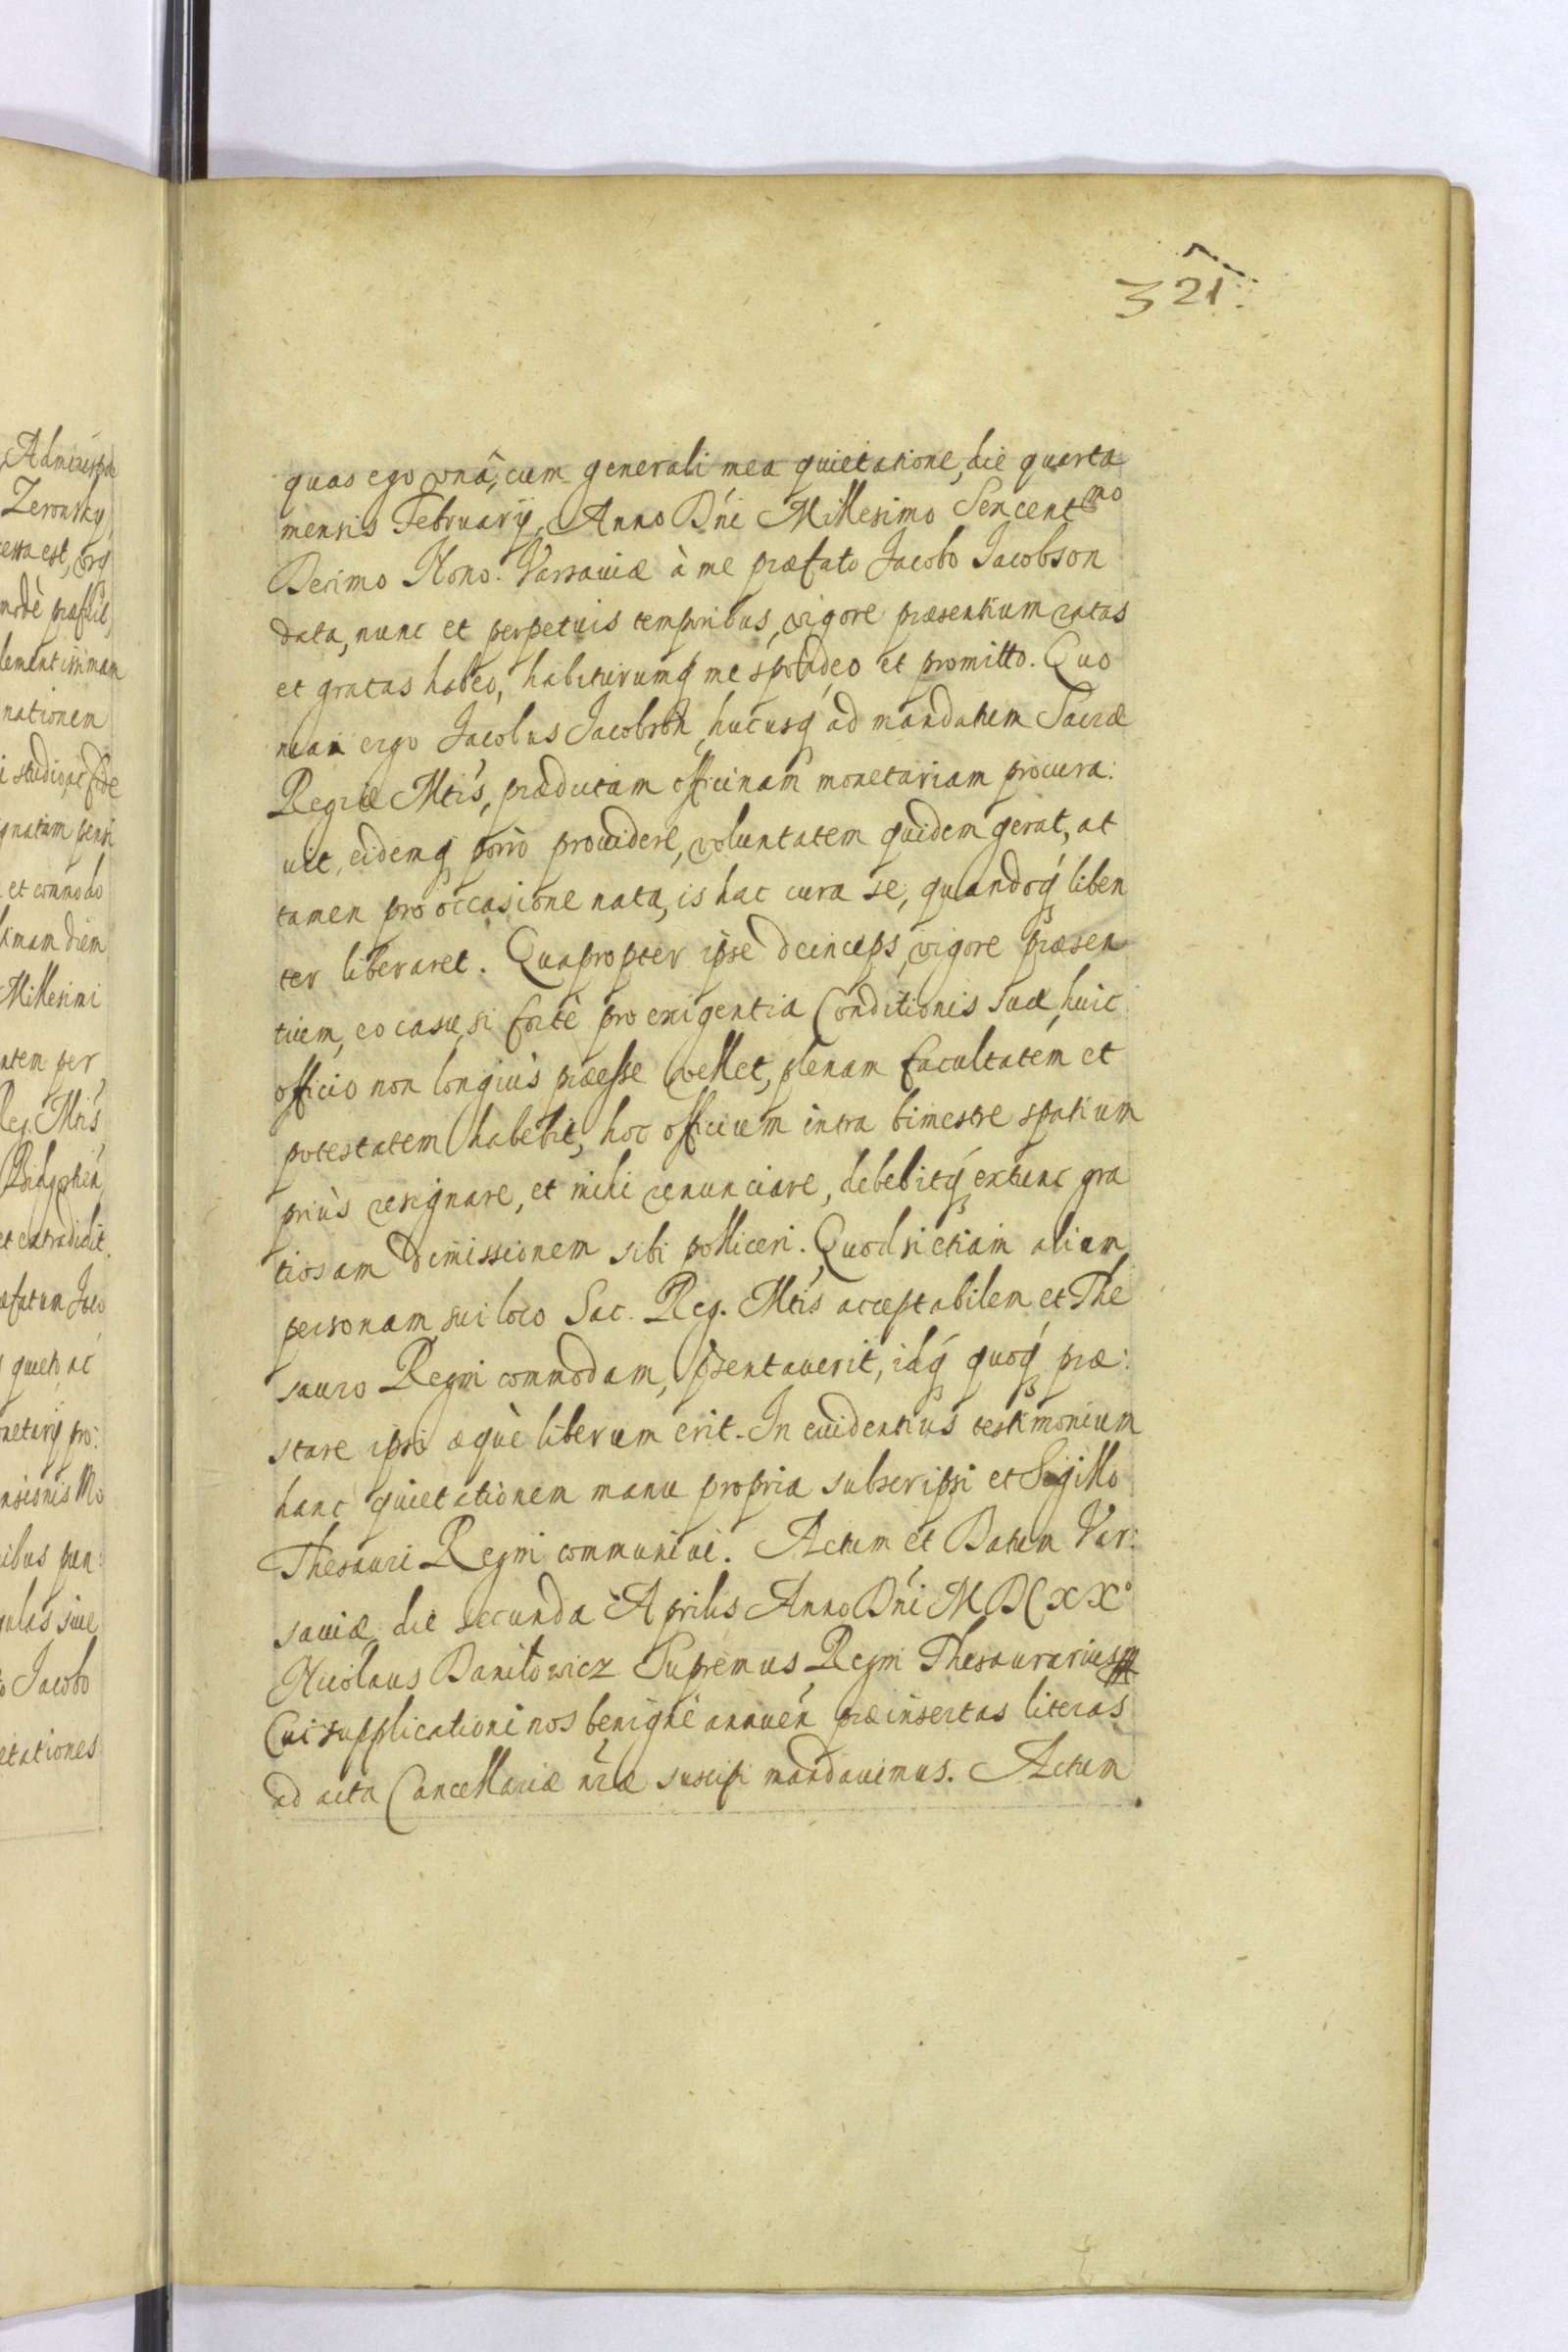 321.
quas ego vnâ, cum generali mea quietatione, die quarta
mensis February, Anno Dni Millesimo Sexcent mo
Decimo Nono. Varsauiæ à me præfato Jacobo Jacobson
data, nunc et perpetuis temporibus, vigore præsentium ratas
et gratas habeo, habiturumq me spondeo et promitto. Quo
niam ergo Jacobus Jacobson, hucusq ad mandatum Sacræ
Regiæ Mtis, prædictam officinam monetariam procura:
uit, eidemq porrò prouidere, voluntatem quidem gerat, at
tamen pro occasione nata, is hac cura se, quandoq liben
ter liberaret. Quapropter ipse deinceps, vigore præsen
tium, eo casu, si fortè pro exigentia Conditionis suæ, huic
officio non longiùs præesse vellet, plenam facultatem et
potestatem habebit, hoc officium intra bimestre spatium
priùs resignare, et mihi renunciare, debebitq extunc gra
tiosam dimissionem sibi polliceri. Quod si etiam aliam
personam, sui loco Sac. Reg. Mtis acceptabilem, et The
sauro Regni commodam, psentauerit, idq quoq præ:
stare ipsi æquè liberum erit. In euidentius testimonium
hanc quietationem manu propria subscripsi et Sigillo
Thesauri Regni communiui. Actum et Datum Var:
sauiæ die secunda Aprilis Anno Dni MDCXX°
Nicolaus Daniłowicz Supremus Regni Thesaurarius
Cui supplicationi nos benignè annuen præinsertas literas
ad acta Cancellariæ nræ suscipi mandauimus. Actum
Zeronsky
lementissimam
nationem
et commodo
Millesimi
Reg. Mtis
et extradidit.
Jacobo
etationes